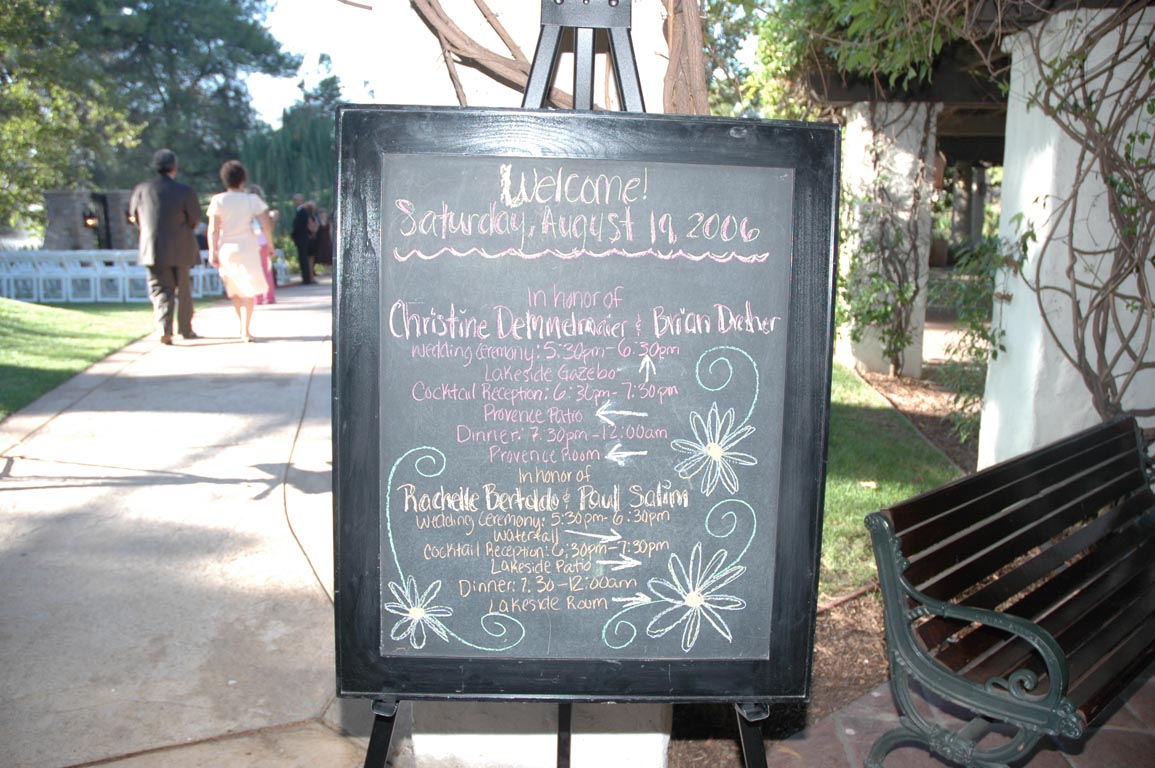 Welcome!
Saturday, August 19, 2006
In honor of
Christine Demmelmaier & Brian Dreher
Wedding Ceremony: 5:30pm-6:30pm
Lakeside Gazebo
Cocktail Reception: 6:30pm-7:30pm
Provence Patio
Dinner: 7:30pm-12:00am
Provence Room
In honor of
Rachelle Bertaldo & Paul Salim
Wedding Ceremony: 5:30pm-6:30pm
Waterfall
Cocktail Reception: 6:30pm-7:30pm
Lakeside Patio
Dinner: 7:30-12:00am
Lakeside Room